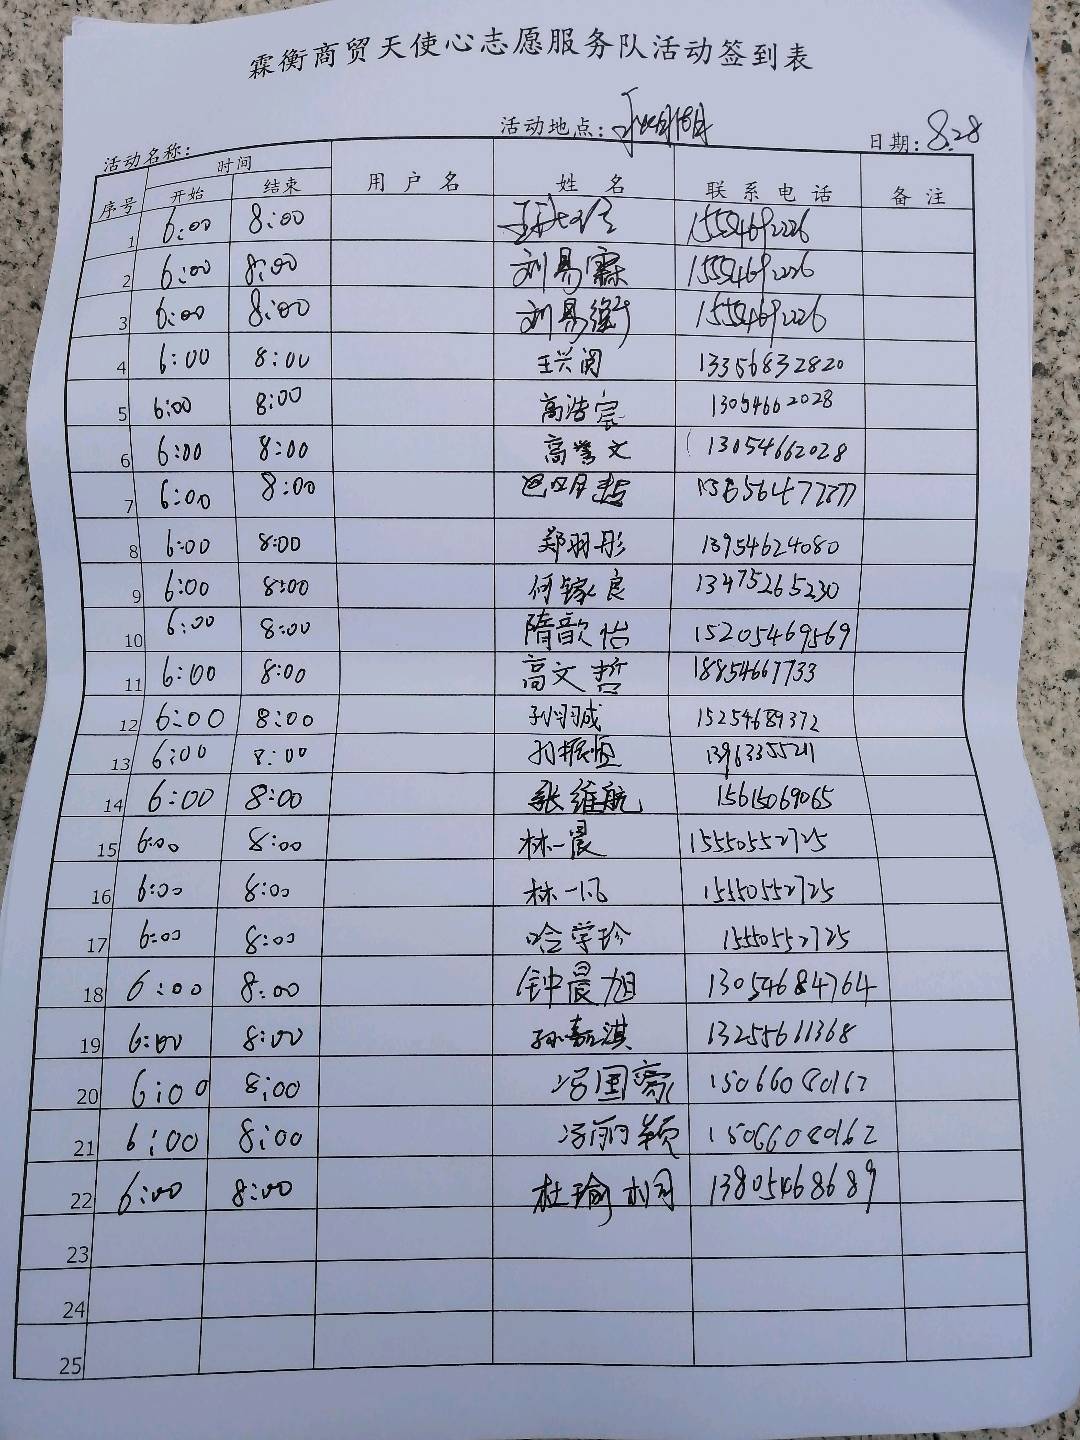 霖衡商贸天使心志愿服务队活动签到表
活动地点:
日期: 8.28
活动名称:
序号 时间 用户名 姓名 联系电话 备注
开始 结束
1 6:00 8:00 15554692226
2 6:00 8:00 刘易霖 15554692226
3 6:00 8:00 刘易衡 15554692226
4 6:00 8:00 王兴阁 13356832820
5 6:00 8:00 高浩宸 13054662028
6 6:00 8:00 高誉文 13054662028
7 6:00 8:00
8 6:00 8:00 郑羽彤 13954624080
9 6:00 8:00 何镓良 13475265230
10 6:00 8:00 隋歆怡 15205469569
11 6:00 8:00 高文哲 18854667733
12 6:00 8:00 孙羽成 15254689372
13 6:00 8:00 孙振恒 13963355211
14 6:00 8:00 张维航 15615069065
15 6:00 8:00 林一晨 15550552725
16 6:00 8:00 林一凡 15550552725
17 6:00 8:00 哈学珍 15550552725
18 6:00 8:00 钟晨旭 13054684764
19 6:00 8:00 孙嘉淇 13255611368
20 6:00 8:00 冯国豪 15066080162
21 6:00 8:00 冯丽颖 15066080162
22 6:00 8:00 杜瑜桐 13805468689
23
24
25